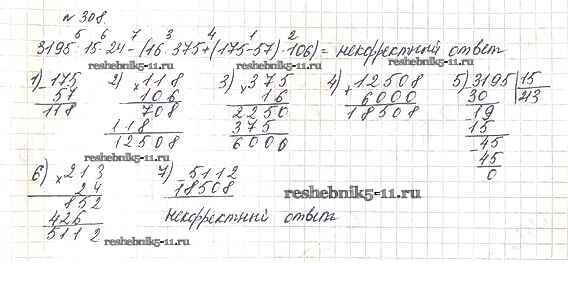 № 308.
5 6 7 3 4 1 2
3195 : 15 · 24 – (16 · 375 + (175 – 57) · 106) = некорректный ответ
1) – 175
57
118
2) × 118
106
708
118
12508
3) × 375
16
2250
375
6000
4) + 12508
6000
18508
5) 3195 | 15
30 | 213
19
15
45
45
0
6) × 213
24
852
426
5112
7) – 5112
18508
некорректный ответ
reshebnik5-11.ru
reshebnik5-11.ru
reshebnik5-11.ru
reshebnik5-11.ru
reshebnik5-11.ru